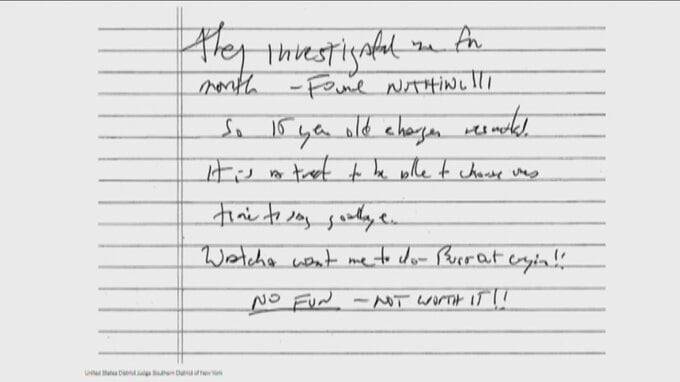 They investigated me for
month – Found NOTHING!!!
So 15 year old charges
It is a treat to be able to choose
time to say goodbye.
Watcha want me to do – Burst out cryin!!
NO FUN – NOT WORTH IT!!
United States District Judge Southern District of New York